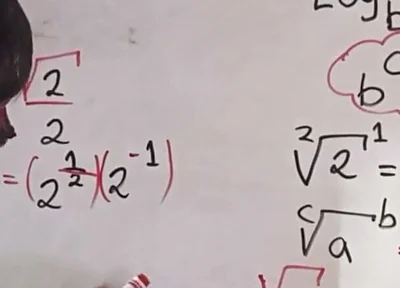 √2
2
= (2^{1/2})(2^{-1})
Log_b
b
²√2^1 =
^c√a^b